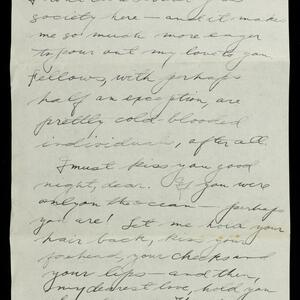 society here — and it makes
me so much more eager
to pour out my love to you.
Fellows, with perhaps
half an exception, are
pretty cold blooded
individuals, after all.
I must kiss you good
night, dear. If you were
only on the ocean — perhaps
you are! Let me hold your
hair back, kiss your
forehead, your cheeks and
your lips — and then,
my dearest love, hold you